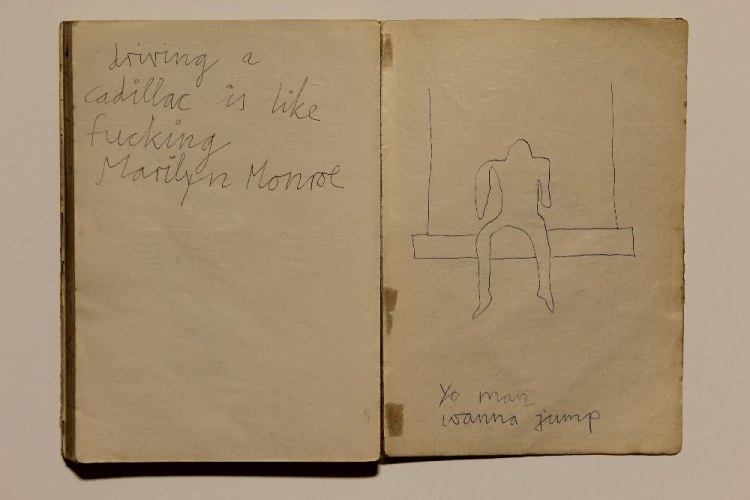 driving a
cadillac is like
fucking
Marilyn Monroe
Yo man
wanna jump